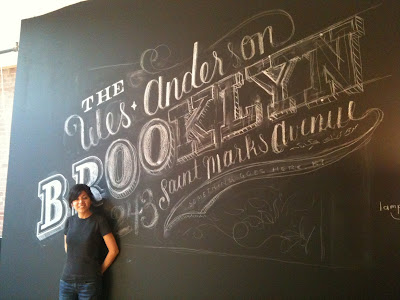 THE
Wes + Anderson
BROOKLYN
243 Saint Marks Avenue